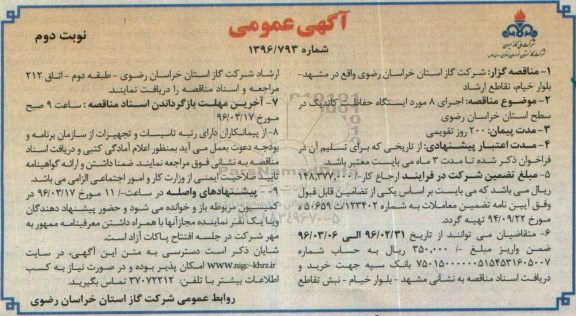 آگهی عمومی
شماره ۱۳۹۶/۷۹۳
نوبت دوم
شرکت ملی گاز ایران
۱- مناقصه گزار: شرکت گاز استان خراسان رضوی واقع در مشهد-
بلوار خیام، تقاطع ارشاد
۲- موضوع مناقصه: اجرای ۸ مورد ایستگاه حفاظت کاتدیک در
سطح استان خراسان رضوی
۳- مدت پیمان: ۲۰۰ روز تقویمی
۴- مدت اعتبار پیشنهادی: از تاریخی که برای تسلیم آن در
فراخوان ذکر شده تا مدت ۳ ماه می بایست معتبر باشد.
۵- مبلغ تضمین شرکت در فرایند ارجاع کار -/
ریال می باشد که می بایست بر اساس یکی از تضامین قابل قبول
وفق آیین نامه تضمین معاملات به شماره ۱۲۳۴۰۲/ت ۵۰۶۵۹ ه
مورخ ۹۴/۰۹/۲۲ تهیه گردد.
۶- متقاضیان می توانند از تاریخ ۹۶/۰۲/۳۱ الی ۹۶/۰۳/۰۶
ضمن واریز مبلغ -/۳۵۰،۰۰۰ ریال به حساب شماره
بانک سپه جهت خرید و
دریافت اسناد مناقصه به نشانی مشهد - بلوار خیام - نبش تقاطع
ارشاد شرکت گاز استان خراسان رضوی - طبقه دوم - اتاق ۲۱۲
مراجعه و اسناد مناقصه را دریافت نمایند.
۷- آخرین مهلت بازگرداندن اسناد مناقصه: ساعت ۹ صبح
مورخ ۹۶/۰۳/۱۷
۸- از پیمانکاران دارای رتبه تاسیسات و تجهیزات از سازمان برنامه و
بودجه دعوت بعمل می آید بمنظور اعلام آمادگی کتبی و دریافت اسناد
مناقصه به نشانی فوق مراجعه نمایند. ضمنا داشتن و ارائه گواهینامه
تایید صلاحیت ایمنی از وزارت کار و امور اجتماعی الزامی می باشد.
۹- پیشنهادهای واصله در ساعت -/۱۱ مورخ ۹۶/۰۳/۱۷ در
کمیسیون مربوطه باز و خوانده می شود و حضور پیشنهاد دهندگان
و یا یک نفر نماینده مجاز آنها با همراه داشتن معرفینامه ممهور به
مهر شرکت در جلسه افتتاح پاکات آزاد است.
شایان ذکر است دسترسی به متن این آگهی، در سایت
www.nigc-khrz.ir امکان پذیر بوده و در صورت نیاز به کسب
اطلاعات بیشتر با تلفن: ۳۷۰۷۲۲۱۲ تماس بگیرید.
روابط عمومی شرکت گاز استان خراسان رضوی